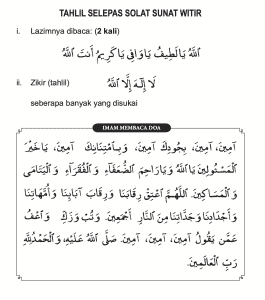 TAHLIL SELEPAS SOLAT SUNAT WITIR
i. Lazimnya dibaca: (2 kali)
اَللّٰهُ يَالَطِيفُ يَاوَافِي يَاكَرِيمُ أَنْتَ اللّٰهُ
ii. Zikir (tahlil) لَا إِلٰهَ إِلَّا اللّٰهُ
seberapa banyak yang disukai
IMAM MEMBACA DOA
آمِينَ، آمِينَ، بِجُودِكَ آمِينَ، وَبِامْتِنَانِكَ آمِينَ، يَاخَيْرَ
الْمَسْئُولِينَ يَااَللّٰهُ وَيَارَاحِمَ الضُّعَفَآءِ وَالْفُقَرَآءِ وَالْيَتَامَى
وَالْمَسَاكِينَ. اَللّٰهُمَّ اعْتِقْ رِقَابَنَا وَرِقَابَ آبَائِنَا وَأُمَّهَاتِنَا
وَأَجْدَادِنَا وَجَدَّاتِنَا مِنَ النَّارِ أَجْمَعِينَ. وَتُبْ وَزَكِّ وَاعْفُ
عَمَّنْ يَقُولُ آمِينَ، آمِينَ، آمِينَ. صَلَّى اللّٰهُ عَلَيْهِ، وَالْحَمْدُلِلّٰهِ
رَبِّ الْعَالَمِينَ.